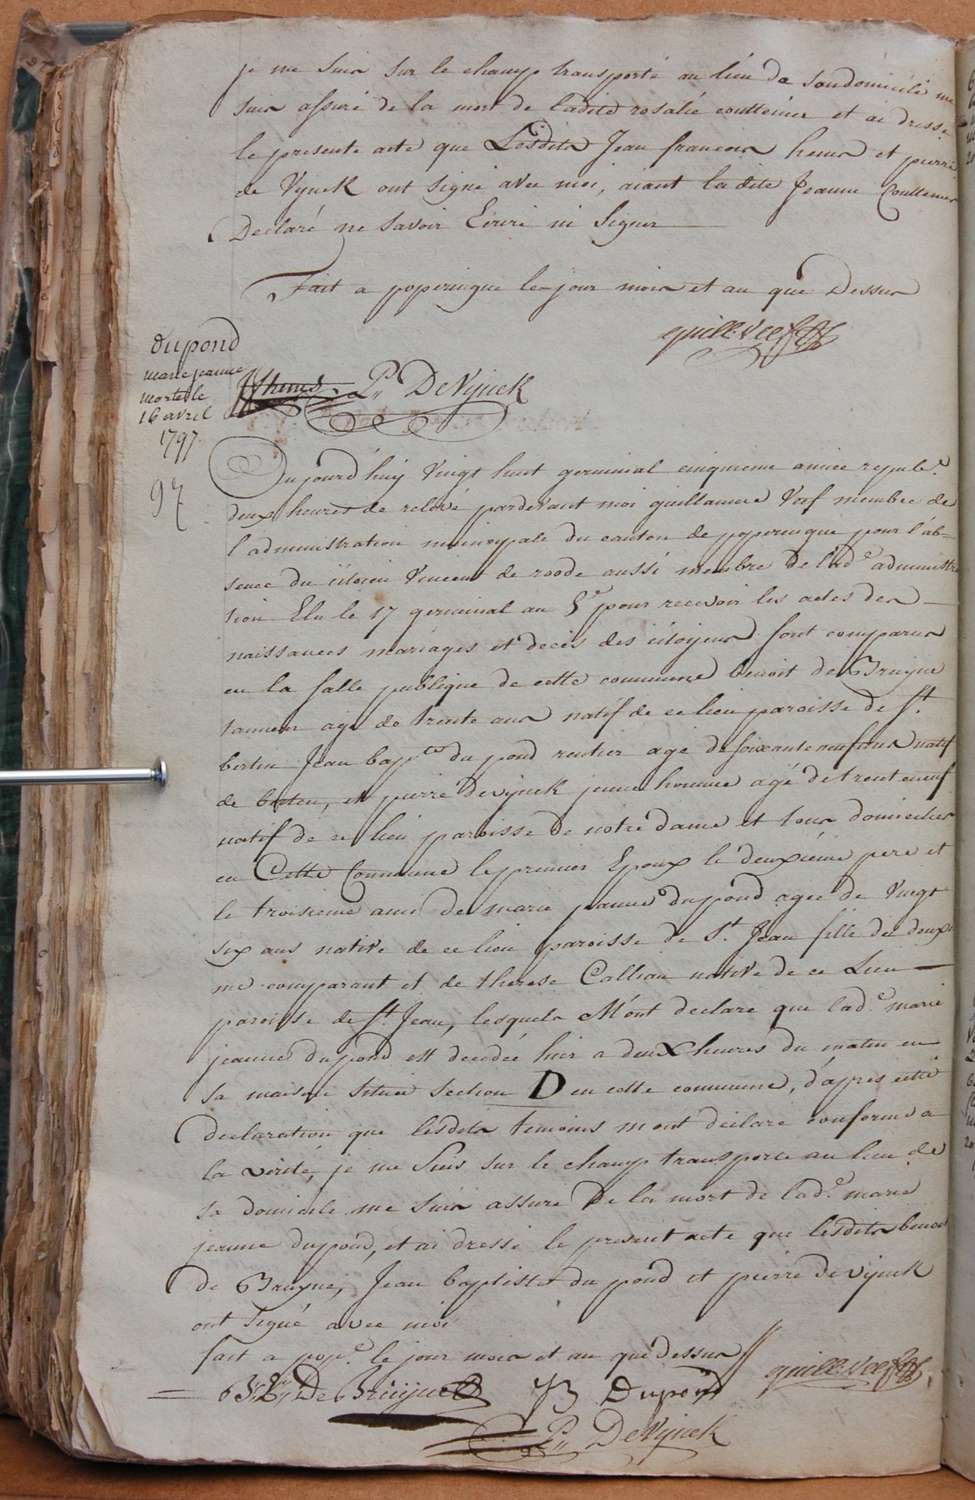 je me suis sur le champ transporté au lieu de son domicile me
suis assuré de la mort de ladite rosalie couttenier et ai dressé
le presente acte que Lesdits Jean francois henis et pierre
de Vynck ont signé avec moi, aiant la dite Jeanne Couttenier
Declaré ne savoir Ecrire ni Signer
Fait a poperingue le jour mois et an que Dessus
dupond
marie jeanne
morte le
16 avril
1797
97
P'' DeVynck
Aujourd'huy Vingt huit germinal cinquieme année repub.e
deux heures de relevé pardevant moi guillaume membre de
l'administration municipale du canton de poperingue pour l'ab-
sence du citoien Vincent de roode aussi membre de lad.e administra
tion Elu le 17 germinal an 5.e pour recevoir les actes des
naissances mariages et decès des citoyens sont comparus
en la salle publique de cette commune benoit de Bruyne
tanneur agé de trente ans natif de ce lieu paroisse de St.
bertin Jean bap.te du pond rentier agé de soixante neuf ans natif
de, et pierre devynck jeune homme agé de trente neuf
natif de ce lieu paroisse de notre dame et tous domiciliés
en Cette Commune le premier Epoux le deuxième pere et
le troisieme ami de marie jeanne dupond agée de Vingt
six ans native de ce lieu paroisse de St. Jean fille du deuxie
me comparant et de therese Calliau native de ce Lieu
paroisse de St. Jean, lesquels M'ont declaré que lad.e marie
jeanne dupond est decedée hier a deux heures du matin en
sa maison située section D en cette commune, d'après cette
declaration que lesdits temoins m'ont déclaré conforme a
la vérité, je me suis sur le champ transporté au lieu de
sa domicile me suis assuré De la mort de lad.e marie
jeanne dupond, et ai dressé le present acte que lesdits benoit
de Bruyne, Jean baptiste du pond et pierre devynck
ont signé avec moi
fait a pop.e le jour mois et an que dessus
De Bruyne JB Dupond
P'' DeVynck